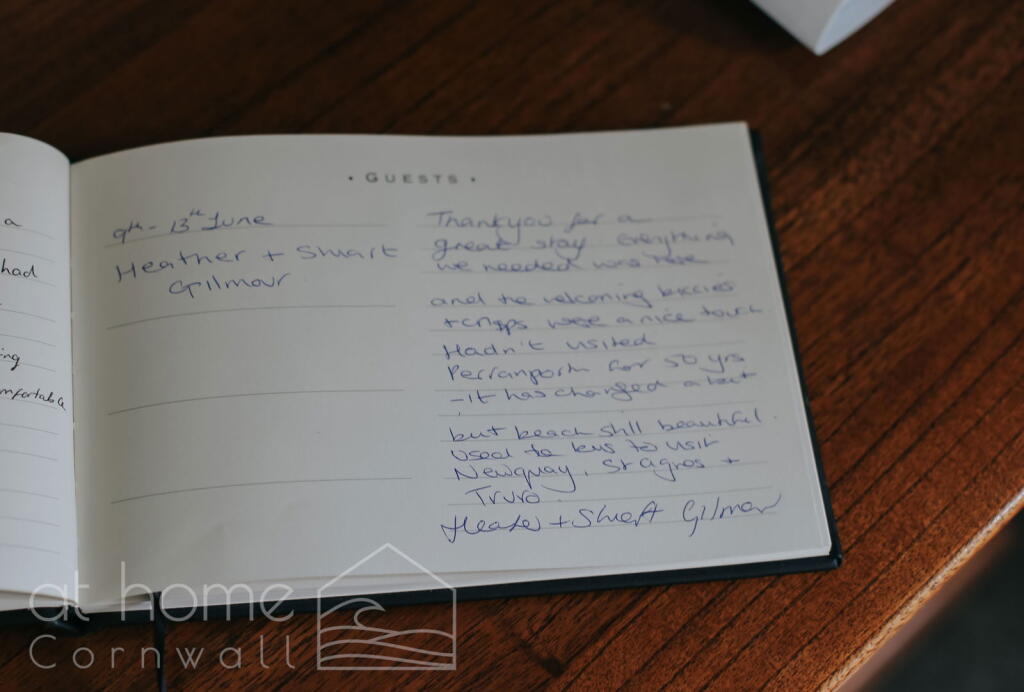 a
had
ng
mfortable
• GUESTS •
9th - 13th June
Heather + Stuart
Gilmour
Thankyou for a
great stay everything
we needed was here
and the welcoming biccies
+ crisps were a nice touch
Hadn't visited
Perranporth for 50 yrs
- it has changed a bit
but beach still beautiful.
used the bus to visit
Newquay, St Agnes +
Truro.
Heather + Stuart Gilmour
at home
Cornwall